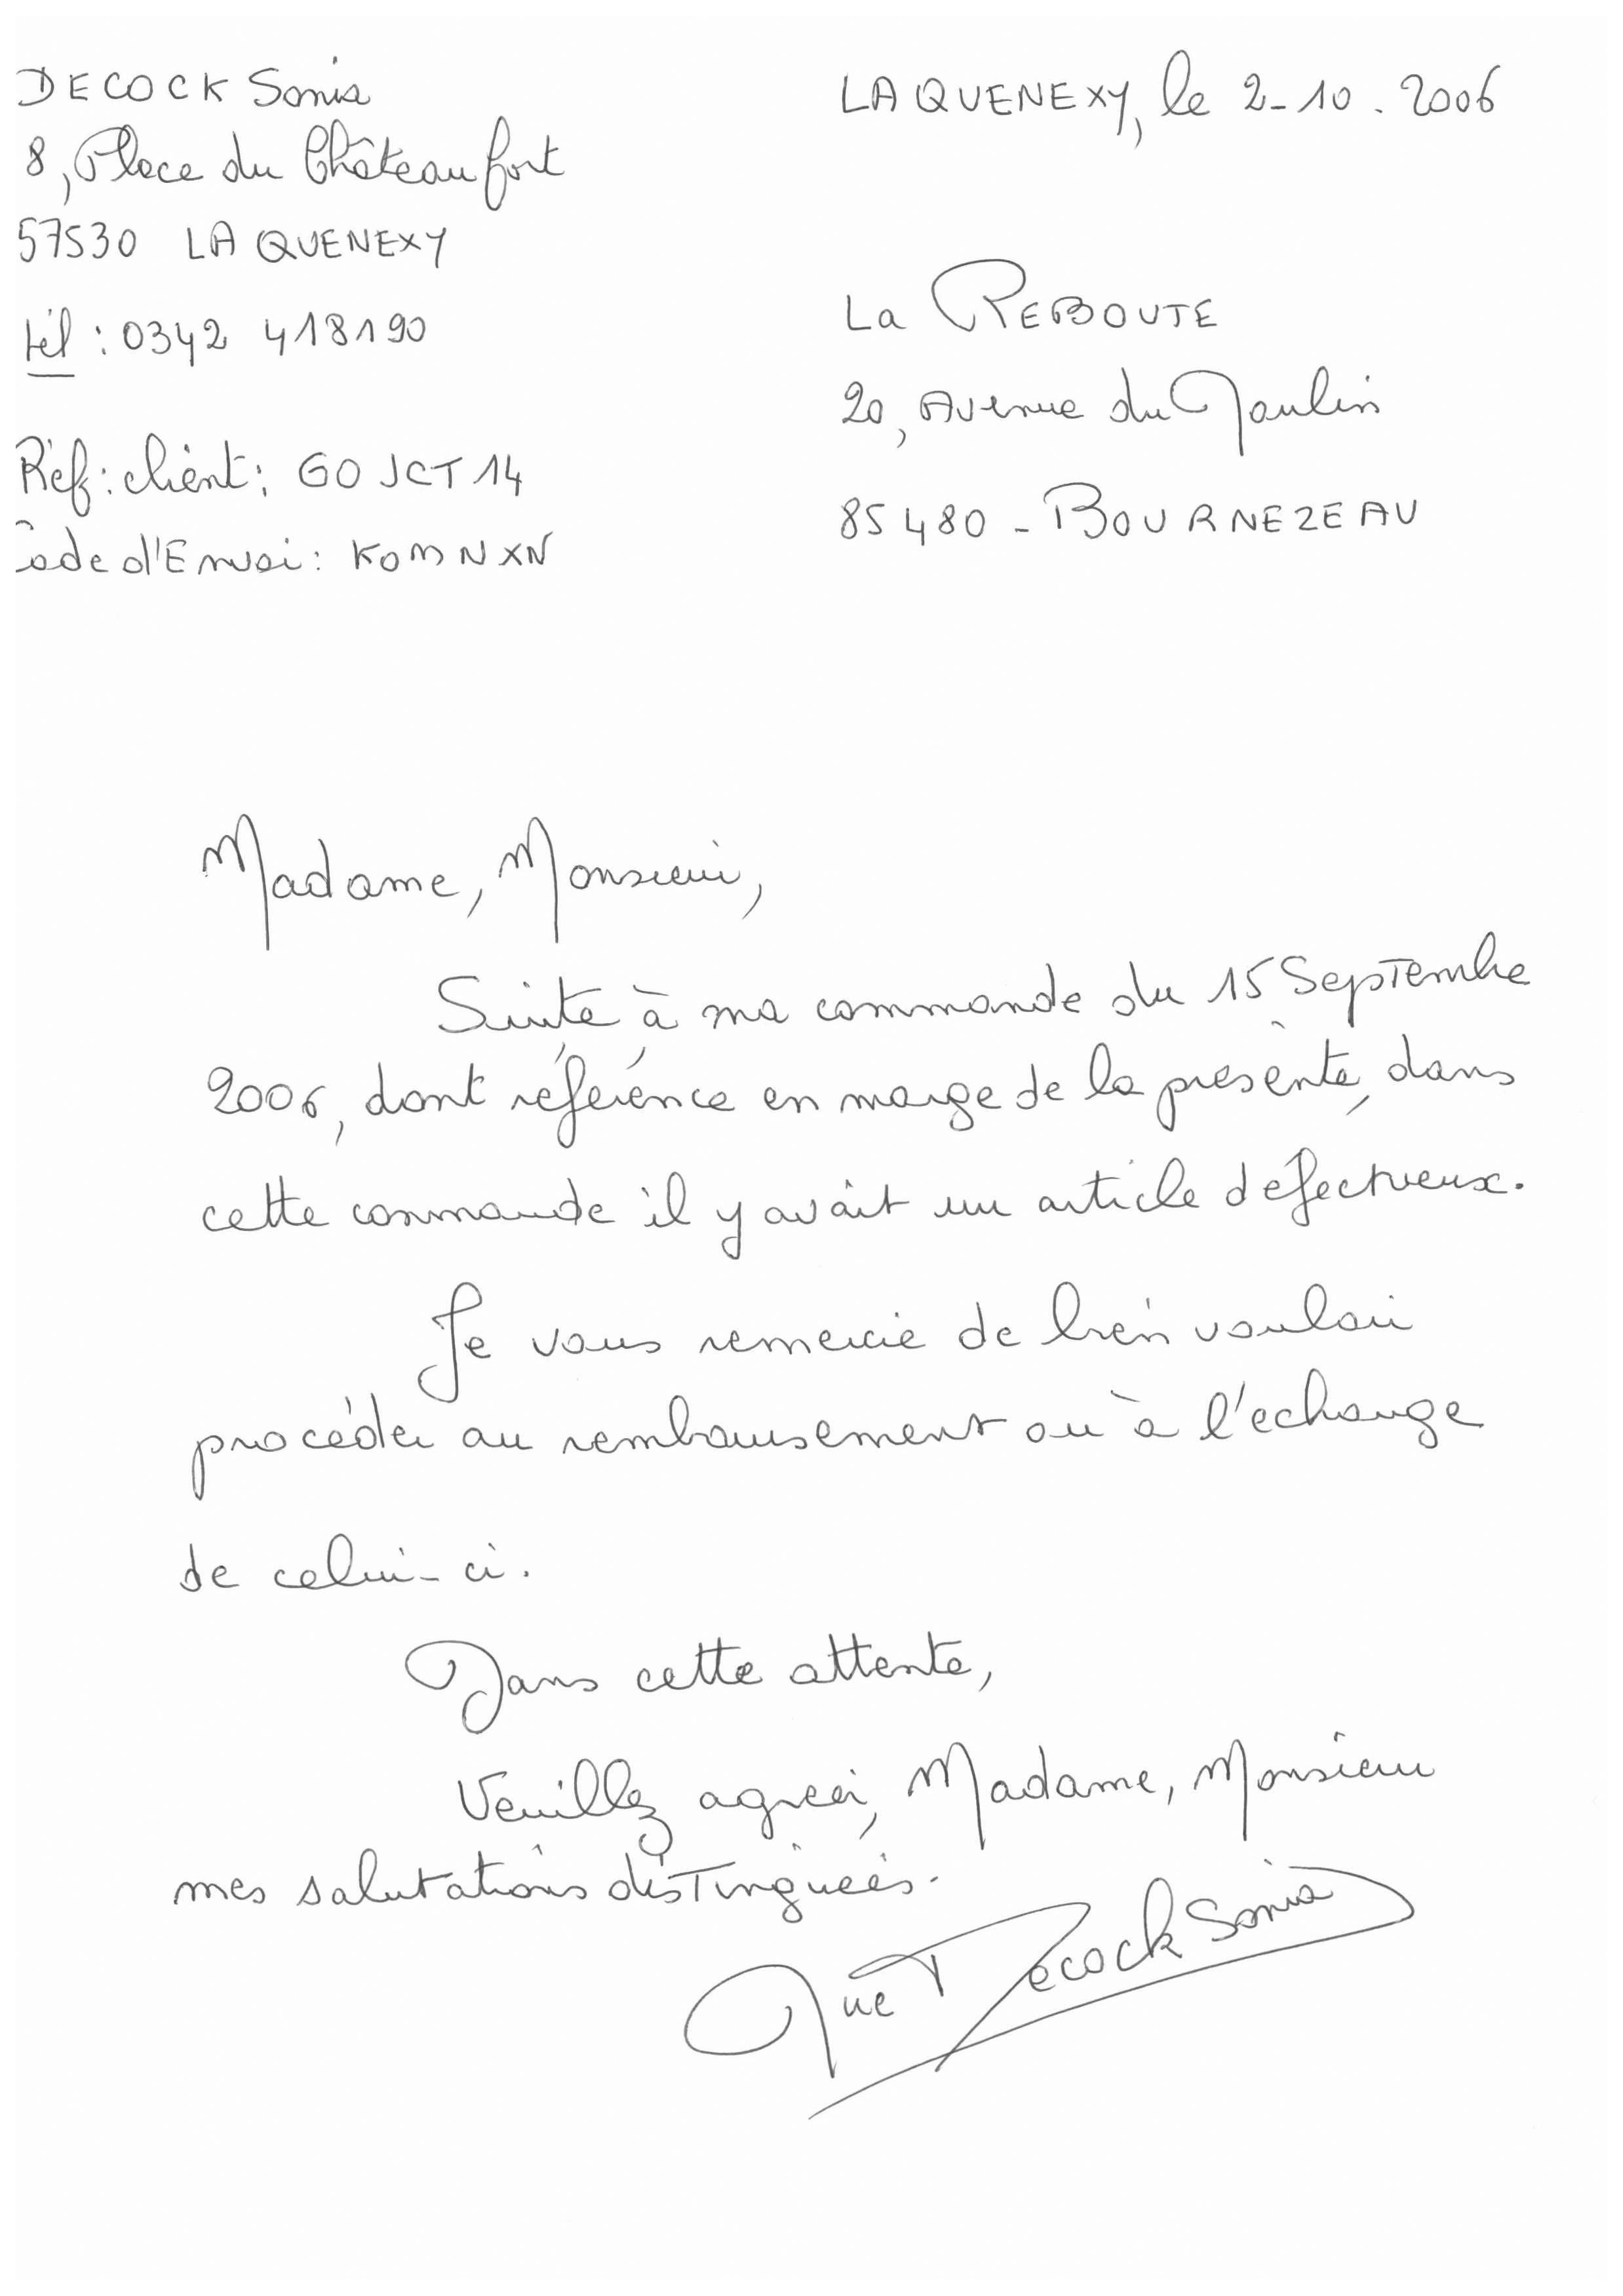 DECOCK Sonia
8, Place du Château fort
57530 LA QUENEXY
tél : 0342 418190
Réf : client : GOJCT14
Code d'Envoi : KOMNXN
LA QUENEXY, le 2-10.2006
La REBOUTE
20, Avenue du Moulin
85480 - BOURNEZEAU
Madame, Monsieur,
Suite à ma commande du 15 Septembre
2006, dont référence en marge de la présente, dans
cette commande il y avait un article défectueux.
Je vous remercie de bien vouloir
procéder au remboursement ou à l'echange
de celui-ci.
Dans cette attente,
Veuillez agréer, Madame, Monsieur
mes salutations distinguées.
Decock Sonia